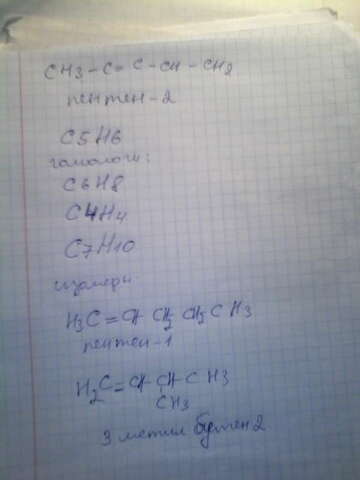 CH3 - C = C - CH - CH2
пентен - 2
C5H6
гомологи:
C6H8
C4H4
C7H10
изомеры
H3C = CH CH2 CH2 CH3
пентен-1
H2C = CH CH CH3
CH3
3 метил бутен 2